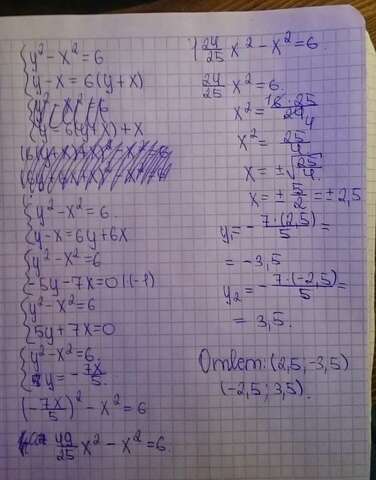 {y² - x² = 6
{y - x = 6(y + x)
{y² - x² = 6
{y - 6(y + x) + x
{y² - x² = 6.
{y - x = 6y + 6x
{y² - x² = 6
{-5y - 7x = 0 |(-1)
{y² - x² = 6
{5y + 7x = 0
{y² - x² = 6.
{y = -7x/5.
(-7x/5)² - x² = 6
49/25 x² - x² = 6.
24/25 x² - x² = 6.
24/25 x² = 6.
x² = 6·25/24 4
x² = 25/4
x = ±√25/4.
x = ±5/2 = ±2,5
y₁ = -7·(2,5)/5 =
= -3,5
y₂ = -7·(-2,5)/5 =
= 3,5.
Ответ: (2,5, -3,5)
(-2,5; 3,5).